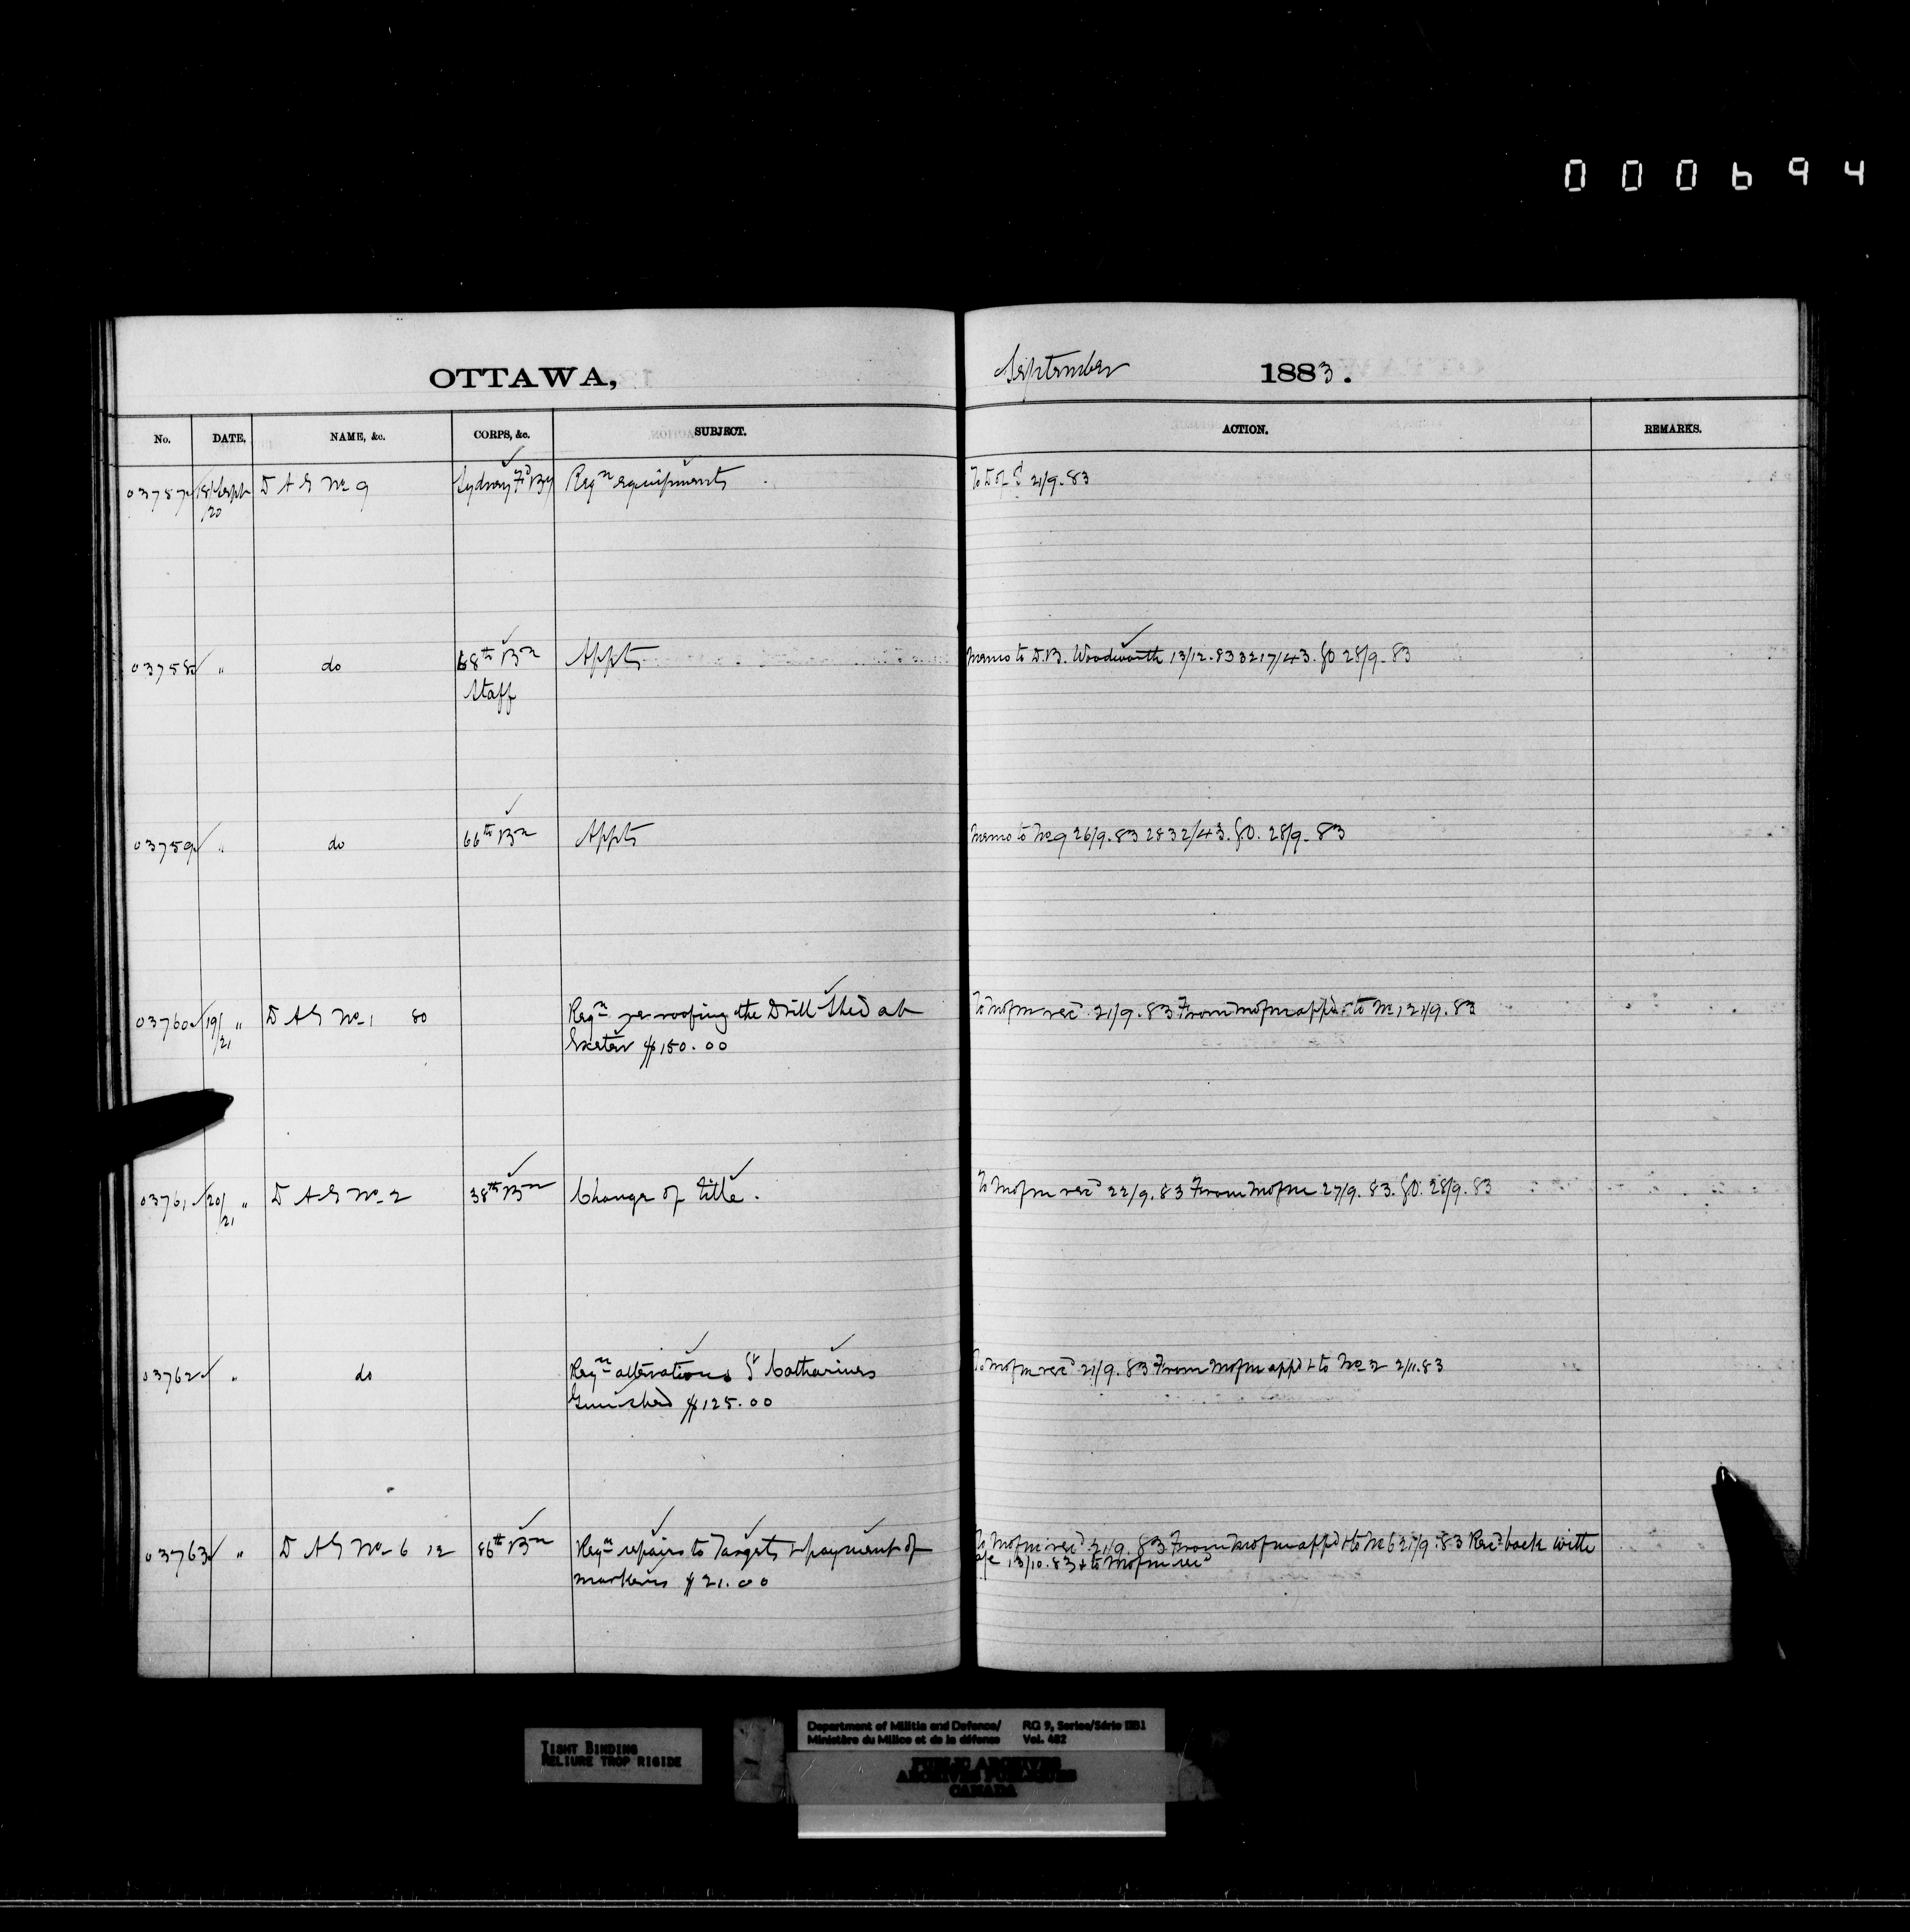 000694
OTTAWA, September 1883.
No. DATE, NAME, &c. CORPS, &c. SUBJECT. ACTION. REMARKS.
03757 18/Sept D A G No 9 Sydney Fd By Reqn equipments To D of S 21/9.83
/20
03758 " do 68th Bn Appts Memo to D.B. Woodworth 13/12.83 3217/43. GO 28/9.83
Staff
03759 " do 66th Bn Appts Memo to No 9 26/9.83 2832/43. GO. 28/9.83
03760 19/ " D A G No 1 80 Reqn re-roofing the Drill Shed at To Mofm recd 21/9.83 From Mofm appd & to No 1 21/9.83
/21 Exeter $150.00
03761 20/ " D A G No 2 38th Bn Change of title. To Mofm recd 22/9.83 From Mofm 27/9.83. GO. 28/9.83
/21
03762 " do Reqn alterations St Catharines To Mofm recd 21/9.83 From Mofm appd & to No 2 2/11.83
Gunshed $125.00
03763 " D A G No 6 12 86th Bn Reqn repairs to Targets & payment of To Mofm recd 21/9.83 From Mofm appd & to No 6 21/9.83 Recd back with
markers $21.00 a/c 13/10.83 & to Mofm recd
TIGHT BINDING
RELIURE TROP RIGIDE
Department of Militia and Defence/ RG 9, Series/Série IIB1
Ministère du Milice et de la défense Vol. 482
PUBLIC ARCHIVES
ARCHIVES PUBLIQUES
CANADA